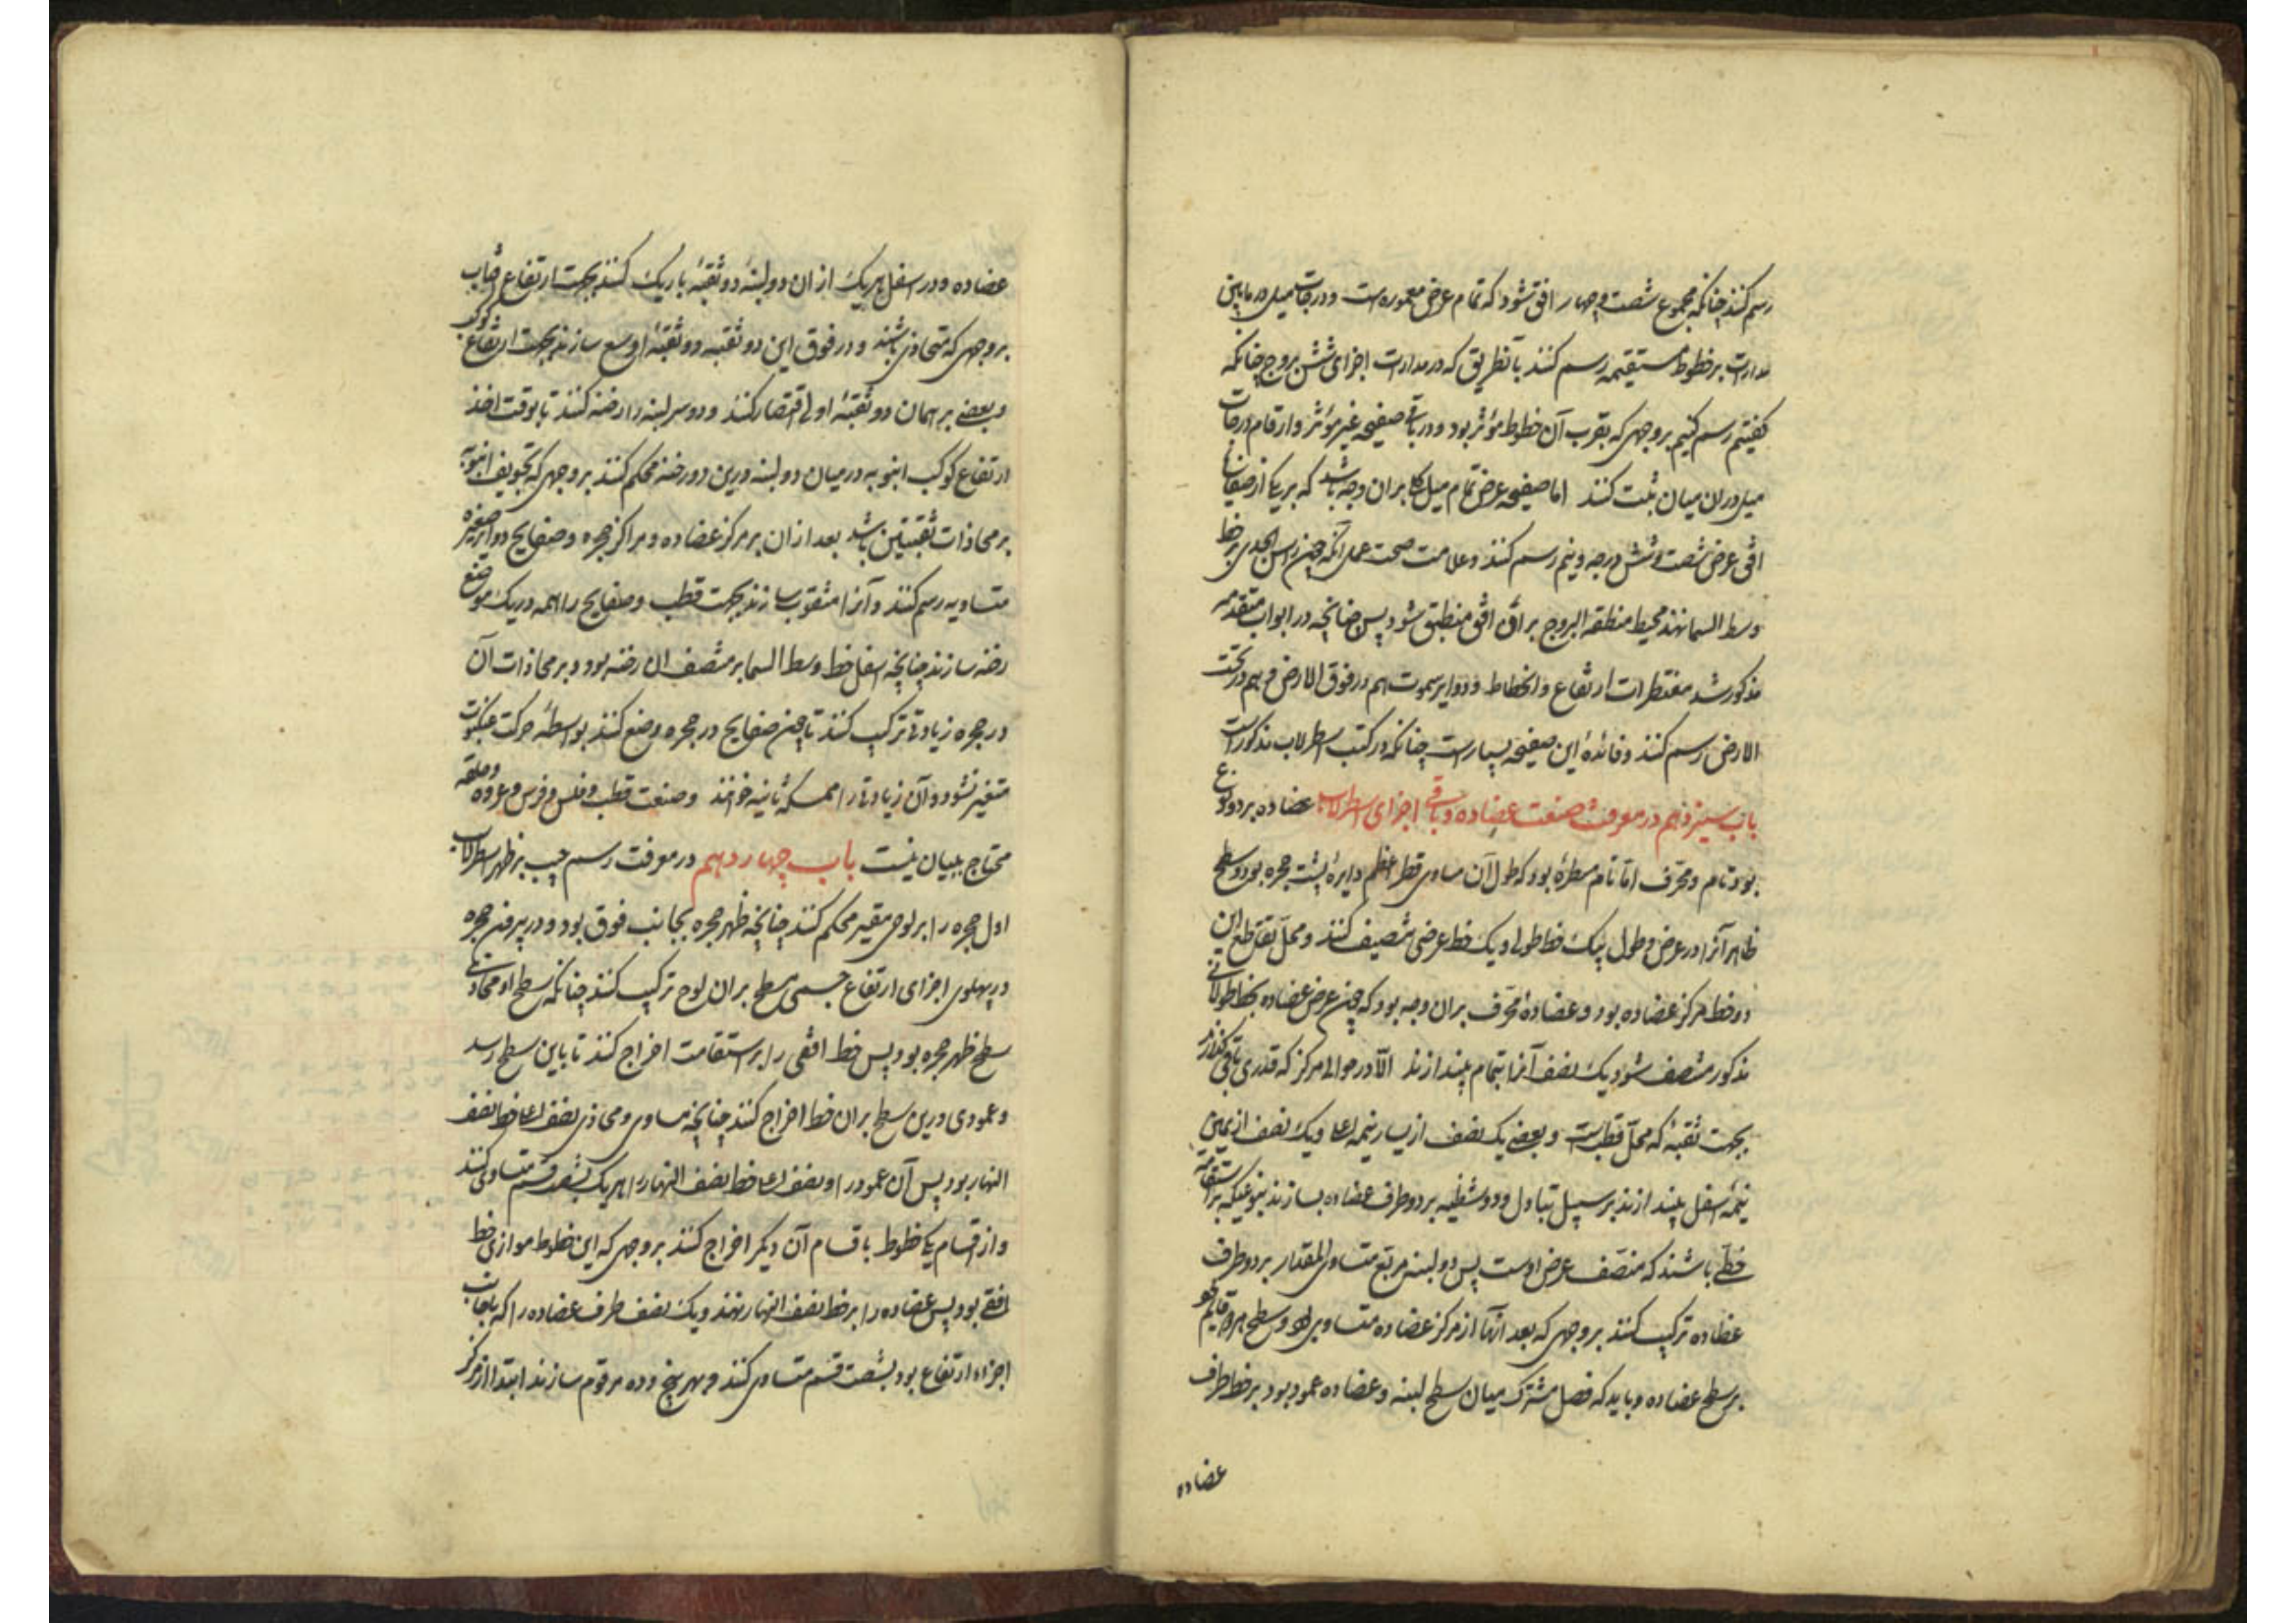 رسم کنند چنانکه مجموع شصت و چهار افق شود که تمام عرض معموره است و درجات میل در مابین
مدارات بر خطوط مستقیمه رسم کنند بآنطریق که در مدارات اجزای شش بروج چنانکه
گفتیم رسم کنیم بر وجهی که بقرب آن خطوط مؤثر بود و در باقی صفیحه غیر مؤثر و ارقام درجات
میل دران میان ثبت کنند اما صفیحه عرض تمام میل کلی بران وجه باشد که بر یکی از صفیحات
افق عرض شصت و شش درجه و نیم رسم کنند و علامت صحت عمل آنکه چون راس الجدی بر خط
وسط السما نهند محیط منطقه البروج بران افق منطبق شود پس چنانچه در ابواب متقدمه
مذکور شد مقنطرات ارتفاع و انحطاط و دوایر سموت هم در فوق الارض و هم در تحت
الارض رسم کنند و فائدهٔ این صفیحه بسیار است چنانکه در کتب اسطرلاب مذکور است
باب سیزدهم در معرفت صنعت عضاده و باقی اجزای اسطرلاب عضاده بر دو نوع
بود تام و محرف اما تام مسطرهٔ بود که طول آن مساوی قطر اعظم دایرهٔ پشت حجره بود و سطح
ظاهر آنرا در عرض و طول بیک خط طولی و یک خط عرضی تنصیف کنند و محل تقاطع این
دو خط مرکز عضاده بود و عضادهٔ محرف بران وجه بود که چون عرض عضاده بخط طولانی
مذکور منصف شود یک نصف آنرا بتمام بیندازند الا در حوالی مرکز که قدری باقی گذارند
بجهت ثقبهٔ که محل قطب است و بعضی یک نصف از یسار نیمه اعلی و یک نصف از یمین
نیمهٔ اسفل بیندازند بر سبیل تبادل و دو شظیه بر دو طرف عضاده بسازند بنوعیکه بر استقامة
خطی باشند که منصف عرض اوست پس دو لبنه مربع متساوی المقدار بر دو طرف
عضاده ترکیب کنند بر وجهی که بعد آنها از مرکز عضاده متساوی بود و سطح هر دو قایم بود
بر سطح عضاده و باید که فصل مشترک میان سطح لبنه و عضاده عمود بود بر خط طرف
عضاده
عضاده و در اسفل هر یک از ان دو لبنهٔ دو ثقبهٔ باریک کنند بجهت ارتفاع آفتاب
بر وجهی که متحاذی باشند و در فوق این دو ثقبه دو ثقبهٔ اوسع سازند بجهت ارتفاع کوکب
و بعضی بر همان دو ثقبهٔ اولی اقتصار کنند و دو سر لبنه را رخنه کنند تا بوقت اخذ
ارتفاع کوکب انبوبه در میان دو لبنه درین دو رخنه محکم کنند بر وجهی که تجویف انبوبه
بر محاذات ثقبتین باشد بعد ازان بر مرکز عضاده و مراکز حجره و صفایح دوایر صغیره
متساویه رسم کنند و آنرا مثقوب سازند بجهت قطب و صفایح را همه در یک موضع
رخنه سازند چنانچه اسفل خط وسط السما بر منصف ان رخنه بود و بر محاذات آن
در حجره زیادتی ترکیب کنند تا چون صفایح در حجره وضع کنند بواسطهٔ حرکت عنکبوت
متغیر نشود و آن زیادتی را ممسکهٔ ثانیه خوانند و صنعت قطب و فلس و فرس و عروه و حلقه
محتاج ببیان نیست باب چهاردهم در معرفت رسم جیب بر ظهر اسطرلاب
اول حجره را بر لوحی مقیر محکم کنند چنانچه ظهر حجره بجانب فوق بود و در بیرون حجره
در پهلوی اجزای ارتفاع جسمی مسطح بران لوح ترکیب کنند چنانکه سطح او محاذی
سطح ظهر حجره بود پس خط افقی را بر استقامت اخراج کنند تا باین سطح رسد
و عمودی درین سطح بران خط اخراج کنند چنانچه مساوی و محاذی نصف اعلی خط نصف
النهار بود پس آن عمود را و نصف اعلی خط نصف النهار را هر یک بشصت قسم متساوی کنند
و از اقسام یکی خطوط باقسام آن دیگر اخراج کنند بر وجهی که این خطوط موازی خط
افقی بود پس عضاده را بر خط نصف النهار نهند و یک نصف طرف عضاده را که بجانب
اجزاء ارتفاع بود بشصت قسم متساوی کنند و بهر پنج و ده مرقوم سازند ابتدا از مرکز